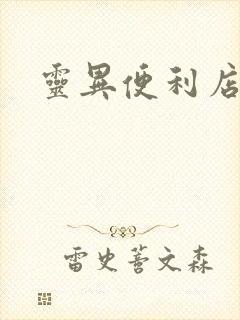 靈異便利店
雷史蒼文森